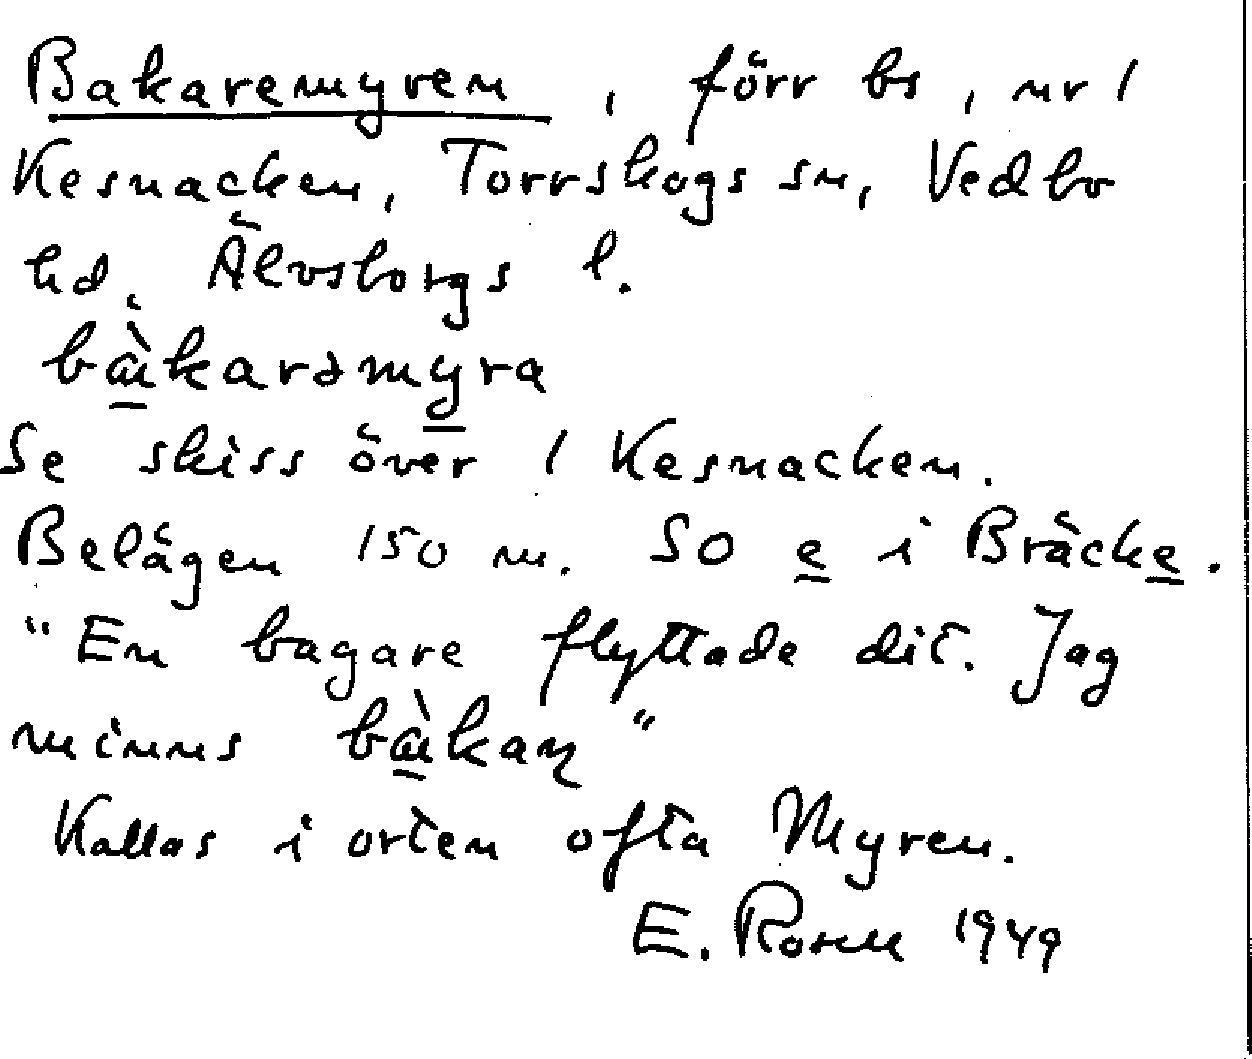 Bakaremyren, förr bs, nr 1
Kesnacken, Torrskogs sn, Vedbo
hd, Älvsborgs l.
bàkarəmyra
Se skiss över 1 Kesnacken.
Belägen 150 m. SO e i Bräcke.
"En bagare flyttade dit. Jag
minns bàkaɳ"
Kallas i orten ofta Myren.
E. Rosell 1949